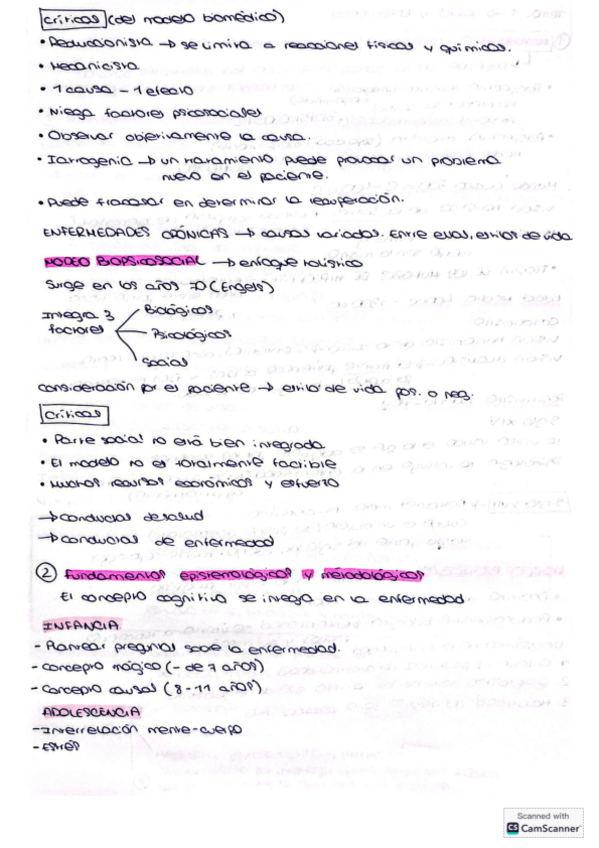 Críticas (del modelo biomédico)
• Reduccionista → se limita a reacciones físicas y químicas.
• Mecanicista
• 1 causa - 1 efecto
• Niega factores psicosociales
• Observar objetivamente la causa.
• Iatrogenia → un tratamiento puede provocar un problema
nuevo en el paciente.
• Puede fracasar en determinar la recuperación.
ENFERMEDADES CRÓNICAS → causas variadas. Entre ellas, estilos de vida
MODELO BIOPSICOSOCIAL → enfoque holístico
Surge en los años 70 (Engels)
Integra 3 factores
Biológicos
Psicológicos
Social
consideración por el paciente → estilo de vida pos. o neg.
Críticas
• Parte social no está bien integrada
• El modelo no es totalmente factible
• Muchos recursos económicos y esfuerzo
→ conductas de salud
→ conductas de enfermedad
② fundamentos epistemológicos y metodológicos
El concepto cognitivo se integra en la enfermedad.
INFANCIA
- Plantear preguntas sobre la enfermedad.
- concepto mágico (- de 7 años)
- concepto causal (8-11 años)
ADOLESCENCIA
- Interrelación mente-cuerpo
- Estrés
Scanned with
CS CamScanner